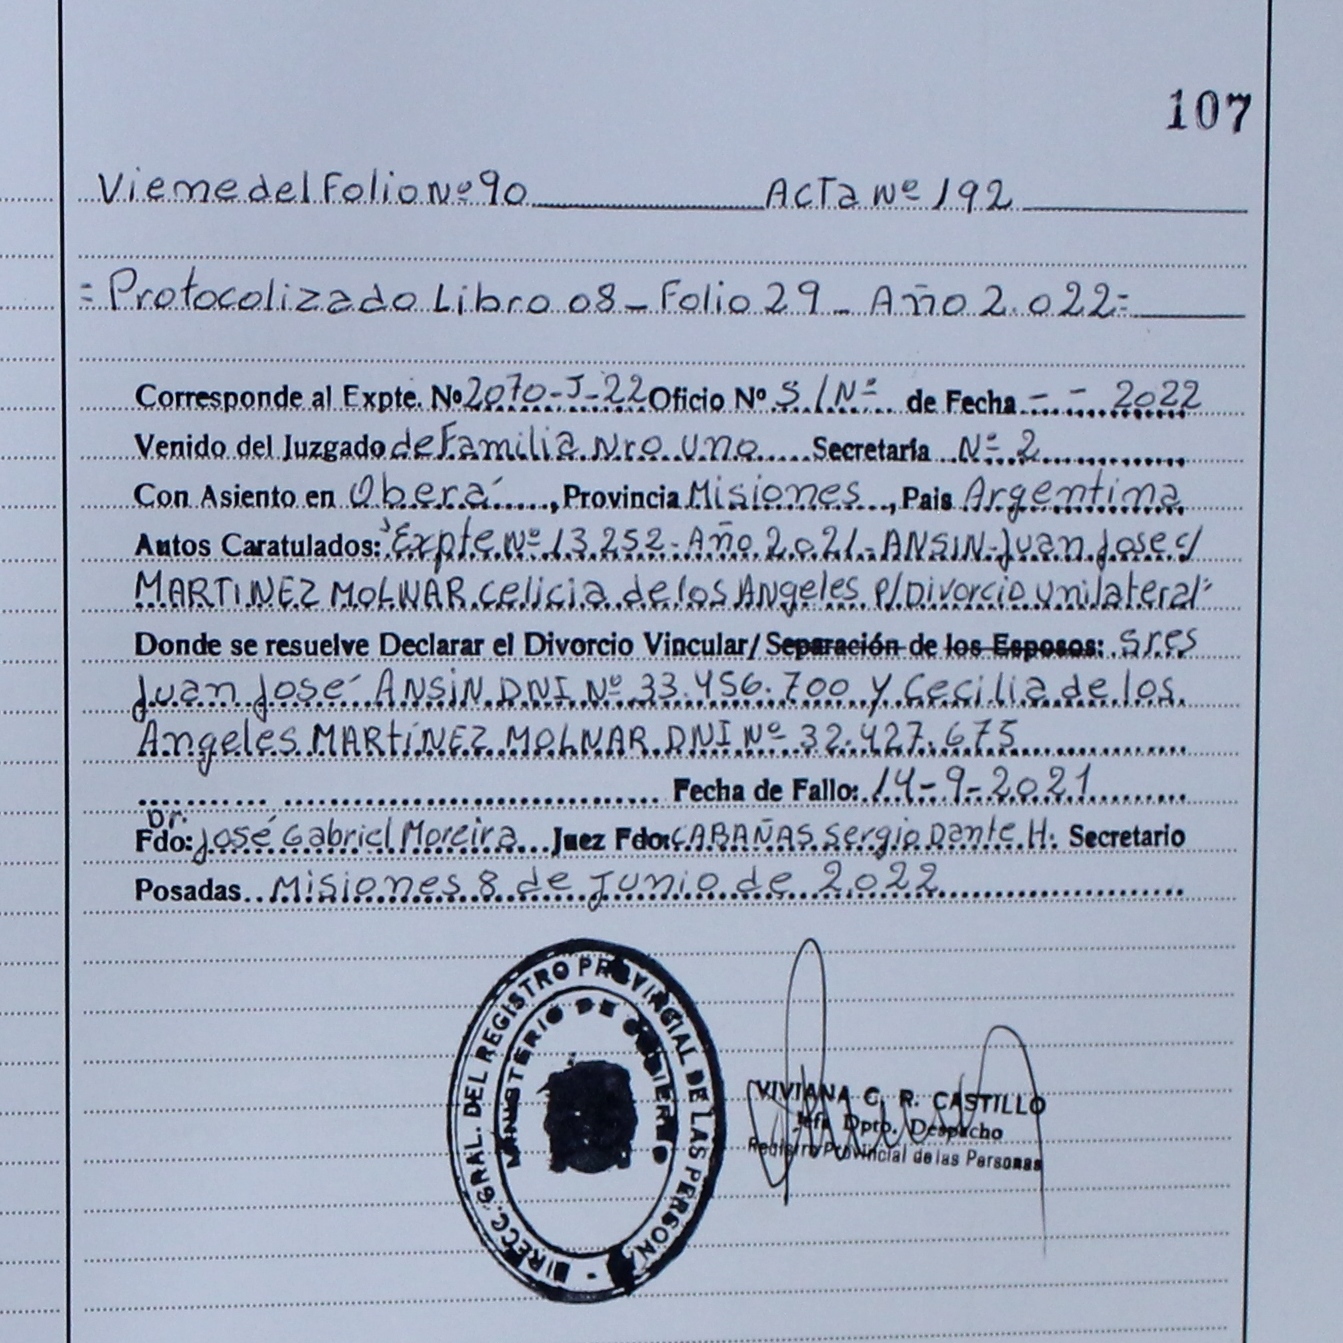 107
Viene del Folio Nº 90 Acta Nº 192
=Protocolizado Libro 08-Folio 29- Año 2.022=
Corresponde al Expte. Nº 2070-J-22 Oficio Nº S/Nº de Fecha - - 2022
Venido del Juzgado de Familia Nro Uno Secretaría Nº 2
Con Asiento en Oberá, Provincia Misiones, Pais Argentina
Autos Caratulados: "Expte Nº 13.252-Año 2.021-ANSIN-Juan Jose c/
MARTINEZ MOLNAR Celicia de los Angeles P/Divorcio Unilateral"
Donde se resuelve Declarar el Divorcio Vincular/ Separación de los Esposos: Sres
Juan José ANSIN DNI Nº 33.456.700 y Cecilia de los
Angeles MARTÍNEZ MOLNAR DNI Nº 32.427.675
Fecha de Fallo: 14-9-2.021
Dr.
Fdo: José Gabriel Moreira Juez Fdo: CABAÑAS Sergio Dante H. Secretario
Posadas Misiones 8 de Junio de 2.022
DIRECC. GRAL. DEL REGISTRO PROVINCIAL DE LAS PERSONAS
MINISTERIO DE GOBIERNO
VIVIANA C. R. CASTILLO
Jefa Dpto. Despacho
Registro Provincial de las Personas